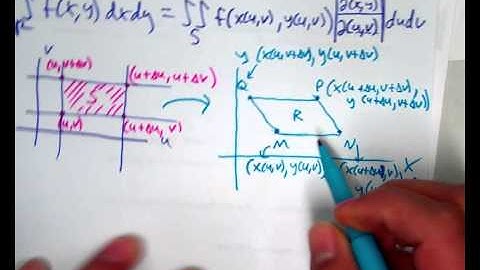 ∬ f(x,y) dxdy = ∬ f(x(u,v), y(u,v)) |∂(x,y)/∂(u,v)| dudv
R
S
v
(u, v+Δv)
(u+Δu, v+Δv)
S
(u,v)
(u+Δu, v)
u
y
(x(u,v+Δv), y(u,v+Δv))
Q
P
(x(u+Δu,v+Δv),
y(u+Δu,v+Δv))
R
M
N
X
(x(u,v), y(u,v))
(x(u+Δu,v),